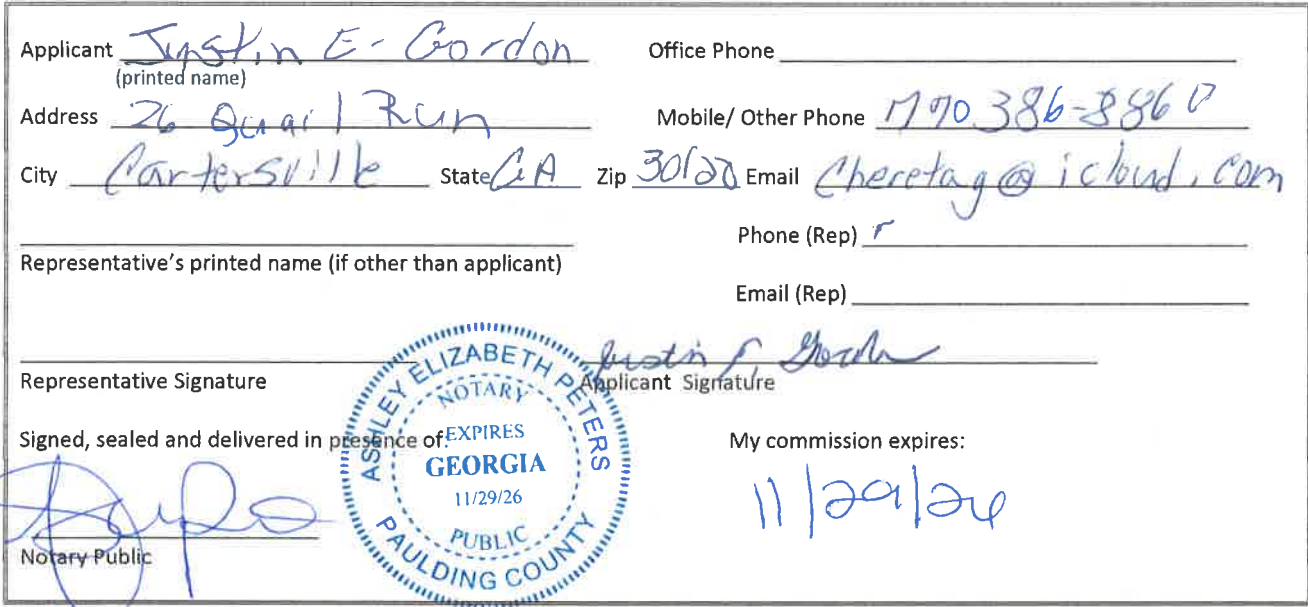 Applicant Justin E- Gordon Office Phone
(printed name)
Address 26 Quail Run Mobile/ Other Phone 770 386-8860
City Cartersville State GA Zip 30120 Email Cheretag@icloud.com
Phone (Rep)
Representative's printed name (if other than applicant)
Email (Rep)
Justin E. Gordon
Representative Signature Applicant Signature
Signed, sealed and delivered in presence of: My commission expires:
11/29/26
Notary Public
ASHLEY ELIZABETH PETERS
NOTARY
EXPIRES
GEORGIA
11/29/26
PUBLIC
PAULDING COUNTY